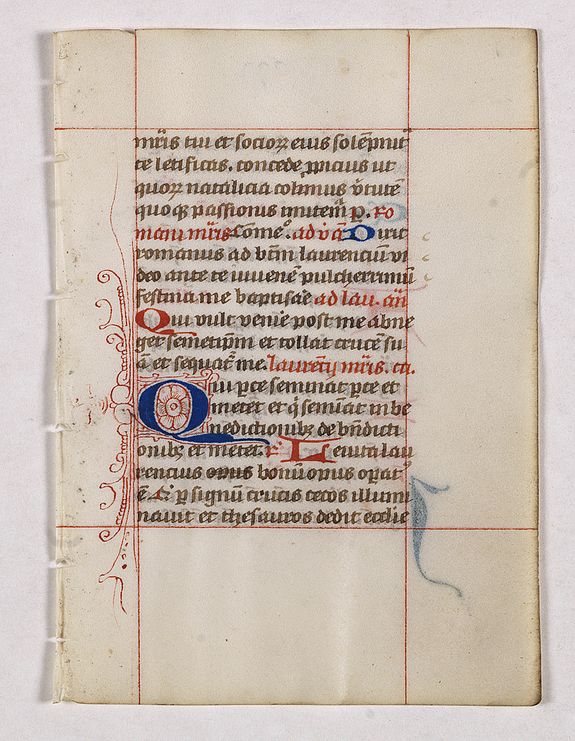 mr̄is tui et socioꝝ eius solēpnit᷑
te letificas. concede ꝓpicius ut
quoꝝ natalicia colimus v̓tutē
quoqꝫ passionis imitem̄. p̄. Ro
mani mr̄is Cōme. ad v̄. an̄ Dixit
romanus ad btm̄ laurencium vi
deo ante te iuuenē pulcherrimū
festina me baptisare ad lau. an̄
Qui vult venire post me abne
get semetip̄m et tollat crucē su
ā et sequat᷑ me. laurentij mr̄is. ca.
Qui ꝑce seminat ꝑce et
metet et q̄ semīat in be
nedictionibꝫ de bn̄dicti
onibꝫ et metet. r̄. Leuita lau
rencius opus bonū opus opat᷑
ē. Q̄ ꝑ signū crucis cecos illumi
nauit et thesauros dedit ecclie